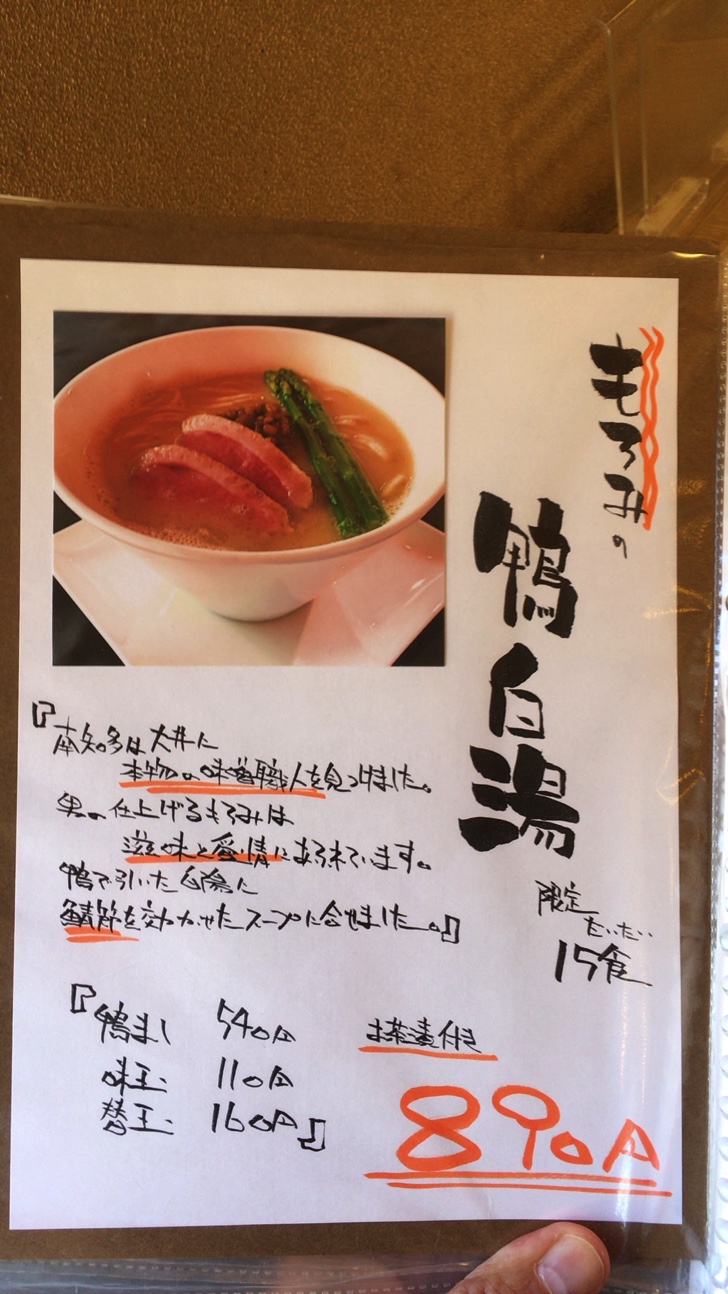 もろみの
鴨白湯
限定
だいたい
15食
『南知多は大井に
本物の味噌職人を見つけました。
男の仕上げるもろみは
滋味と愛情にあふれています。
鴨で引いた白湯に
鯖節を効かせたスープに合せました。』
『鴨まし 540円
味玉 110円
替玉 160円』
お茶漬付き
890円